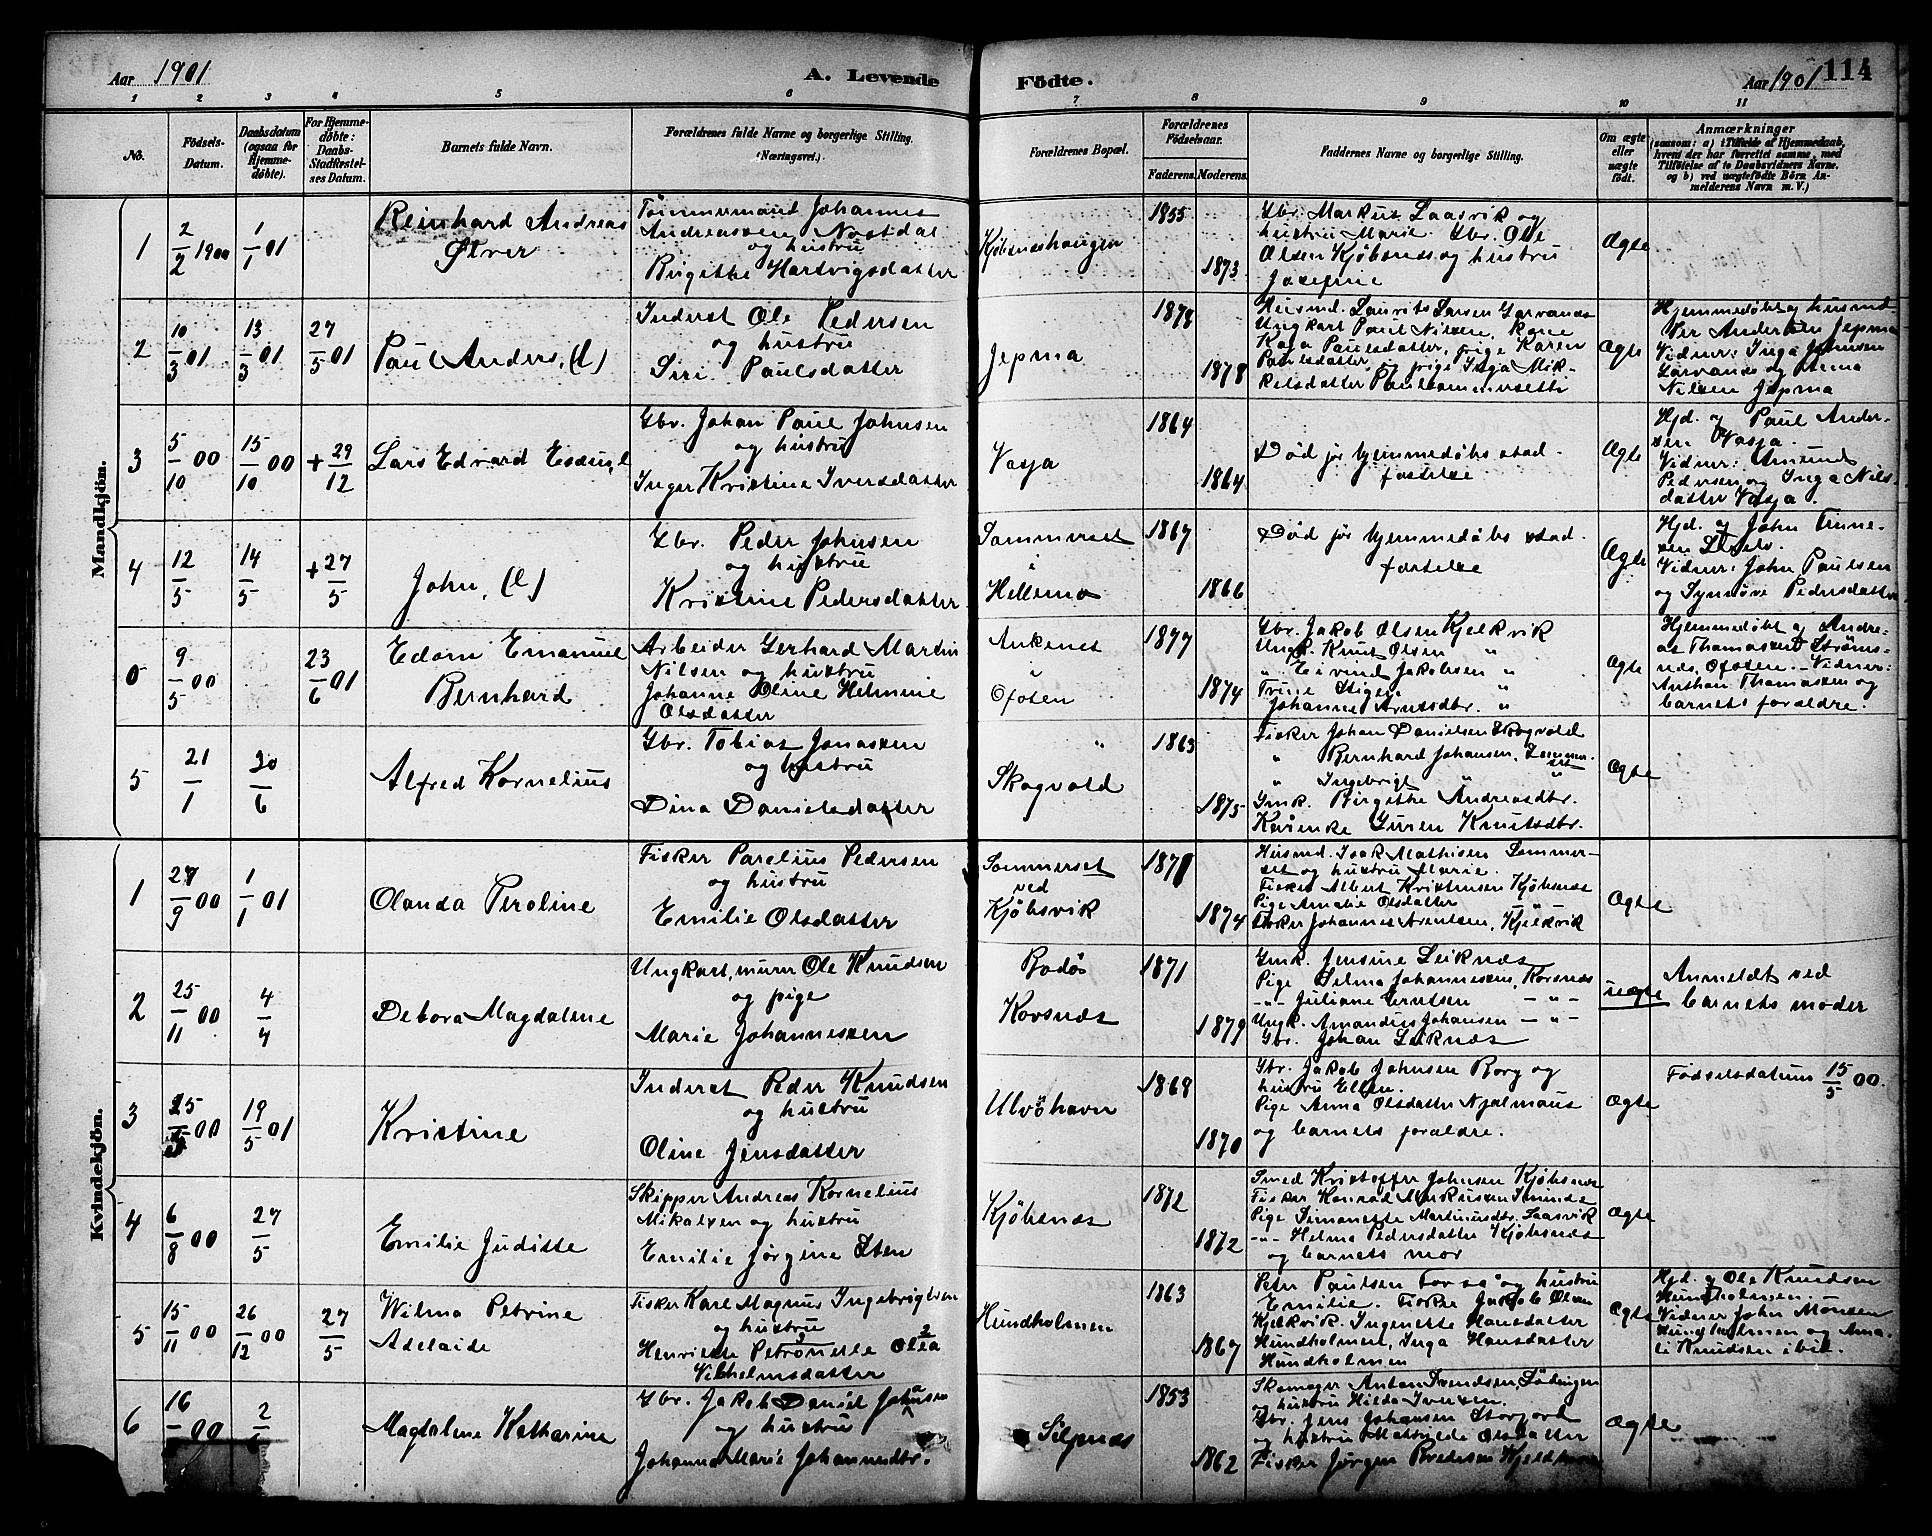 Aar 1901
A. Levende
Födte.
Aar 1901
114
1 2 3 4 5 6 7 8 9 10 11
No.
Födsels-
Datum.
Daabsdatum
(ogsaa for
Hjemme-
døbte).
For Hjemme-
døbte:
Daabs-
Stadfæstel-
ses Datum.
Barnets fulde Navn.
Forældrenes fulde Navne og borgerlige Stilling.
(Næringsvei.)
Forældrenes Bopæl.
Forældrenes
Fødselsaar.
Faderens. Moderens.
Faddernes Navne og borgerlig Stilling.
Om ægte
eller
uægte
födt.
Anmærkninger
(saasom: a) i Tilfælde af Hjemmedaab,
hvem der har forrettet samme, med
Tilföielse af to Daabsvidners Navne,
og b) ved uægtefödte Börn An-
melderens Navn m. V.)
Mandkjön.
1
2/2 1900
1/1 01
Reinhard Andreas
Ølver
Tömmermand Johannes
Andreassen Nordal
og hustru
Birgitte Hartvigsdatter
Kjöbsneshaugen
1855
1873
Gbr. Markus Saasvik og
hustru Marie. Gbr. Ole
Olsen Kjöbsnes og hustru
Josefine
Ægte
2
10/3 01
13/3 01
27/5 01
Paul Anders, (l)
Inderst Ole Pedersen
og hustru
Siri Paulsdatter
Jepma
1878
1878
Husmd. Laurits Larsen Garvanes
Ungkarl Paul Nilsen, kone
Kaja Paulsdatter, pige Karen
Paulsdatter, og pige Inga Mik-
kelsdatter
Ægte
Hjemmedøbt af husmd
Per Andersen Jepma
Vidner: Inga Johnsen
Garvanes og Anna
Nilsen Jepma
3
5/10 00
15/10 00
+ 29/12
Lars Edvard
Gbr. Johan Paul Johnsen
og hustru
Inger Kristine Iversdatter
Vasja
1864
1864
Död för hjemmedøbs stad-
fæstelse
Ægte
Hjd. af Paul Ander-
sen Vasja.
Vidner: Amund
Pedersen og Inga Nils-
datter Vasja.
4
12/5
14/5
+ 27/5
John, (l)
Gbr. Peder Johnsen
og hustru
Kristine Pedersdatter
Sommerset
i
Hellemo
1867
1866
Död för hjemmedøbs stad-
fæstelse
Ægte
Hjd. af John
Vidner: John Paulsen
og Synnöve Pedersdatter
0
9/5 00
23/6 01
Edom Emanuel
Bernhard
Arbeider Gerhard Martin
Nilsen og hustru
Johanne Oline Helmine
Olsdatter
Ankenes
i
Ofoten
1877
1874
Gbr. Jakob Olsen Kjelkvik
Ungk. Knut Olsen "
" Eivind Jakobsen "
Trine Stigen "
Johanne Arntsdtr. "
Ægte
Hjemmedøbt af Andre-
as Thomassen Ströms-
nes, Ofoten. – Vidner:
Anthon Thomassen og
barnets forældre.
5
21/1
30/6
Alfred Kornelius
Gbr. Tobias Jonassen
og hustru
Dina Danielsdatter
"
Skogvold
1863
1875
Fisker Johan Danielsen Skogvold
" Bernhard Johansen, Sommer-
set
" Ingebrigt " "
Gmk. Birgitte Andreasdtr.
Kårenke Guren Knutsdtr.
Ægte
Kvindekjön.
1
27/9 00
1/1 01
Olanda Peroline
Fisker Parelius Pedersen
og hustru
Emilie Olsdatter
Sommerset
ved
Kjöbsvik
1871
1874
Husmd. Isak Mathisen Sommer-
set og hustru Marie.
Fisker Albert Kristensen Kjöbsnes
Pige Amalie Olsdatter "
Fisker Johannes Arentsen, Kjelkvik
Ægte
2
25/11 00
4/4
Debora Magdalene
Ungkarl, murer Ole Knudsen
og pige
Marie Johannessen
Bodö
Korsnæs
1871
1879
Gmk. Jensine Leiknæs
Pige Selma Johannessen, Korsnæs
-"- Juliane Erntsen -"-
Ungk. Amandus Johansen -"-
Gbr. Johan Leiknæs
uegte
Anmeldt ved
barnets moder
3
25/5 00
19/5 01
Kristine
Inderst Peder Knudsen
og hustru
Oline Jensdatter
Ulvöhavn
1868
1870
Gbr. Jakob Johnsen Rorg og
hustru Ellen.
Pige Anna Olsdatter Njalmaus
og barnets forældre.
Ægte
Födselsdatum 15/5 00.
4
6/8 00
27/5
Emilie Juditte
Skipper Andreas Kornelius
Mikalsen og hustru
Emilie Jörgine Sten
Kjöbsnæs
1872
1872
Smed Kristoffer Johnsen Kjöbsnæs
Fisker Konrad Markussen
Pige Simonette Martinusdtr. Saasvik
-"- Helma Pedersdatter Kjöbsnæs
og barnets mor
Ægte
5
15/11 00
26/12 00
27/5
Wilma Petrine
Adelaide
Fisker Karl Magnus Ingebrigtsen
og hustru
Henriette Petronelle Olea
Vilhelmsdatter
Hundholmen
1863
1867
Peter Paulsen Forså og hustru
Emilie. Fisker Jakob Olsen
Kjelkvik. Ingenette Hansdatter
Hundholmen, Inga Hansdatter
Hundholmen
Ægte
Hjd. af Ole Knudsen
Hundholmen. –
Vidner John Monsen
Hundholmen og Ama-
li Knudsen ibid.
6
16/ 00
2/
Magdalene Katharine
Gbr. Jakob Daniel Johansen
og hustru
Johanna Marie Johannesdtr.
Selpnæs
1853
1862
Skomager Anton Svendsen, Lödingen
og hustru Hilda Iversen.
Gbr. Jens Johansen Storjord
og hustru Mathilde Olsdatter
Fisker Jörgen Bredesen
Ægte